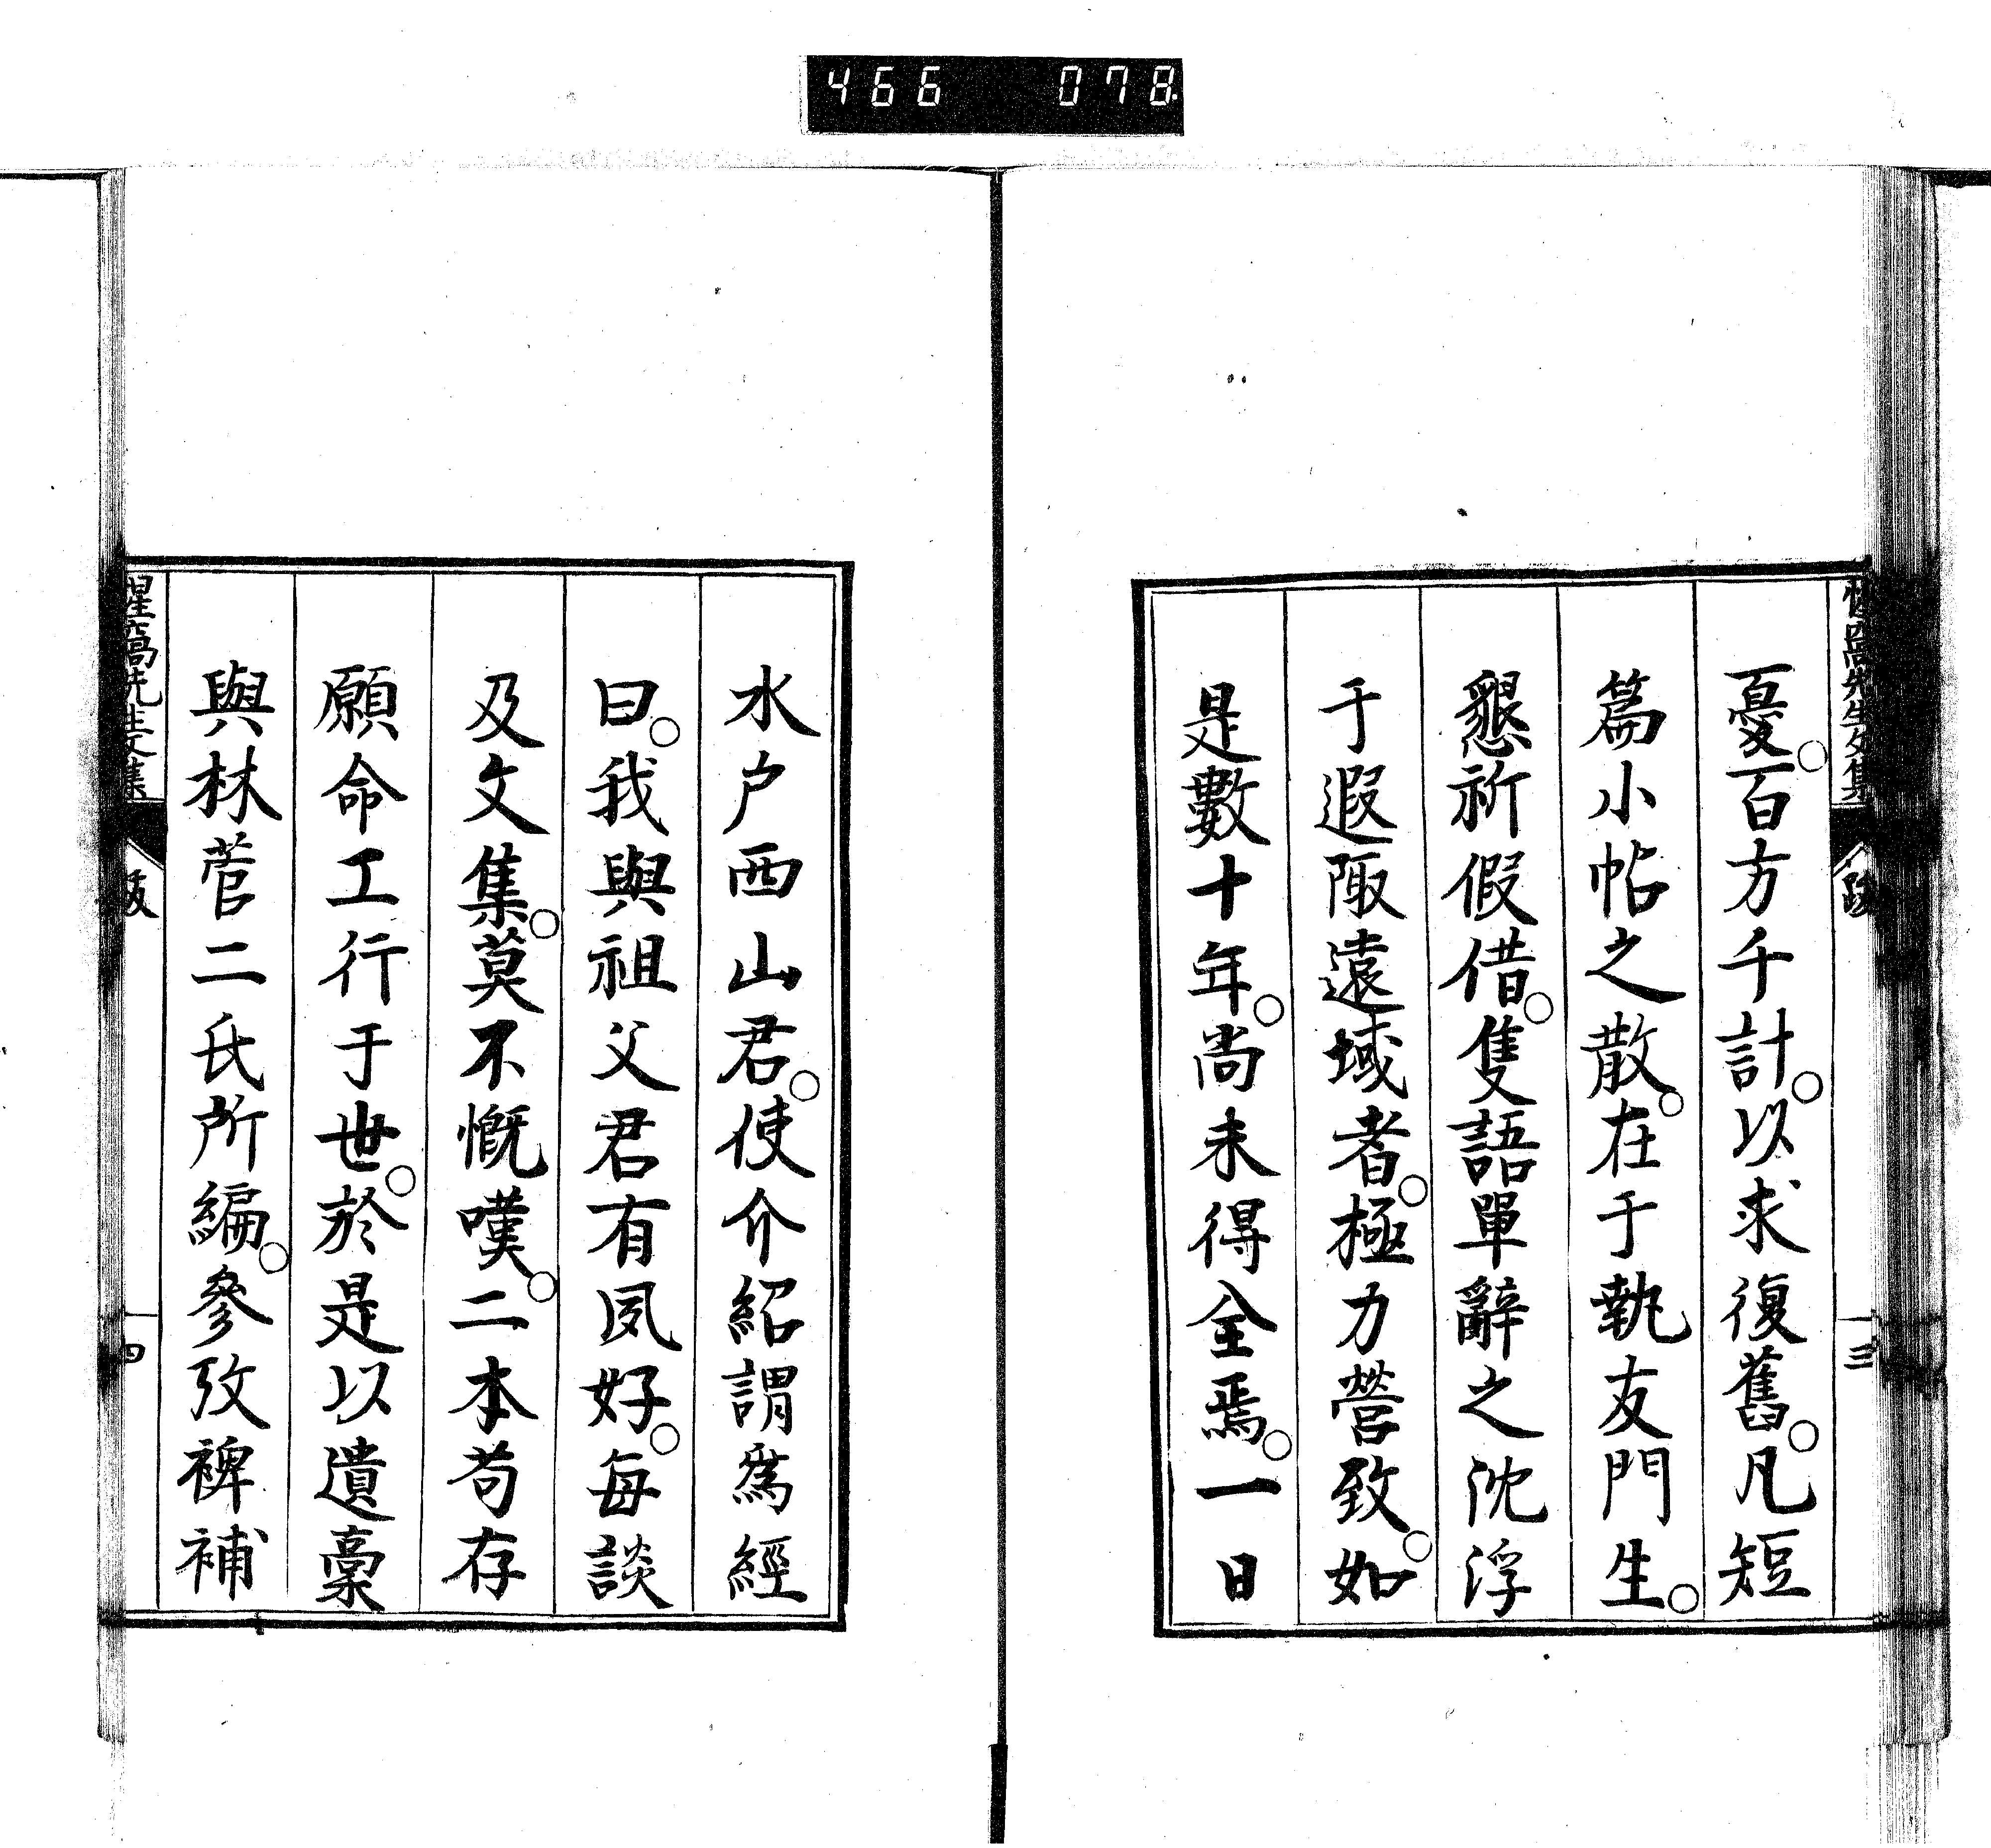 466 078
惺窩先生文集
跋
三
憂。百方千計。以求復舊。凡短
篇小帖之散。在于執友門生。
懇祈假借。隻語單辭之沈浮
于遐陬遠域者。極力營致。如
是數十年。尚未得全焉。一日
水户西山君。使介紹謂爲經
曰。我與祖父君有夙好。每談
及文集。莫不慨嘆。二本苟存
願命工行于世。於是以遺稾
與林菅二氏所編。參攷裨補
惺窩先生文集
跋
四